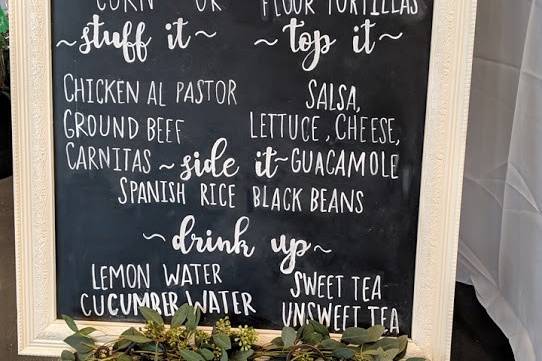 CORN OR FLOUR TORTILLAS
~stuff it~ ~top it~
CHICKEN AL PASTOR
GROUND BEEF
CARNITAS
SALSA,
LETTUCE, CHEESE,
GUACAMOLE
~side it~
SPANISH RICE BLACK BEANS
~drink up~
LEMON WATER
CUCUMBER WATER
SWEET TEA
UNSWEET TEA